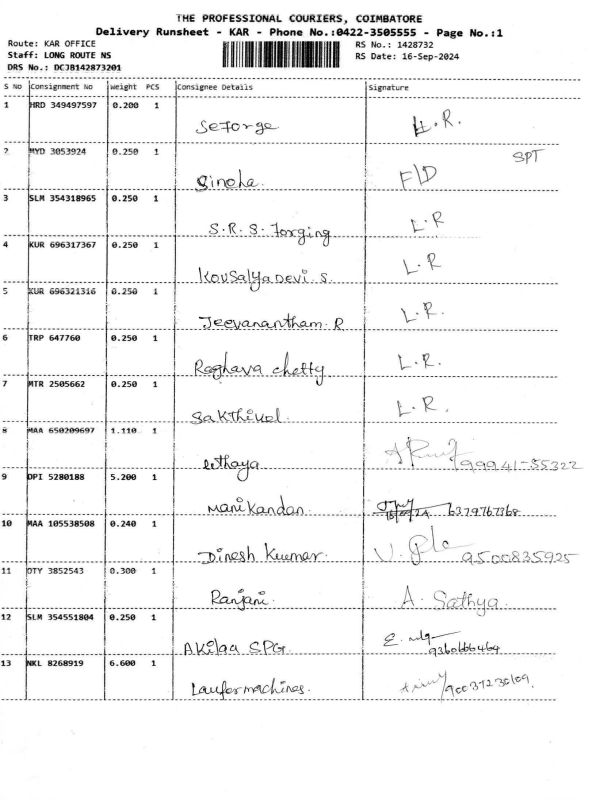 THE PROFESSIONAL COURIERS, COIMBATORE
Delivery Runsheet - KAR - Phone No.:0422-3505555 - Page No.:1
Route: KAR OFFICE RS No.: 1428732
Staff: LONG ROUTE NS RS Date: 16-Sep-2024
DRS No.: DCJB142873201
S No Consignment No Weight PCS Consignee Details Signature
1 HRD 349497597 0.200 1
Seforge H.R.
2 MYD 3053924 0.250 1 SPT
Sinoha F/D
3 SLM 354318965 0.250 1
S.R.S. Forging L.R
4 KUR 696317367 0.250 1
Kousalya Devi. S. L.R
5 KUR 696321316 0.250 1
Jeevanantham R L.R.
6 TRP 647760 0.250 1
Raghava chetty L.R.
7 MTR 2505662 0.250 1
Sakthivel L.R.
8 MAA 650209697 1.110 1
uthaya 99941-55322
9 DPI 5280188 5.200 1
Manikandan 16/09/24 6379767368
10 MAA 105538508 0.240 1
Dinesh Kuumar 9500835925
11 OTY 3852543 0.300 1
Ranjani A. Sathya
12 SLM 354551804 0.250 1
Akilaa SPG 9360666464
13 NKL 8268919 6.600 1
Laufer machines.